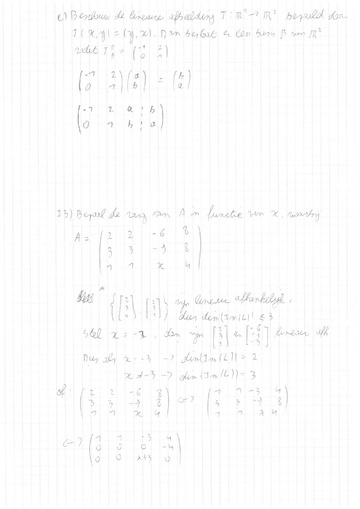 c) Beschouw de lineaire afbeelding T: ℝ² → ℝ² bepaald door
T(x,y) = (y,x). Dan bestaat er een basis β van ℝ²
zodat T = (-1 2
0 1)
(-1 2
0 1) (a
b) = (b
a)
(-1 2 a | b
0 1 b | a)
23) Bepaal de rang van A in functie van x, waarbij
A = (2 2 -6 8
3 3 -9 8
1 1 x 4)
{[2
3
1], [2
3
1]} zijn lineair afhankelijk,
dus dim(Im(L)) ≤ 3
Stel x = -3, dan zijn [2
3
1] en [-6
-9
-3] lineair afh
Dus als x = -3 → dim(Im(L)) = 2
x ≠ -3 → dim(Im(L)) = 3
of (2 2 -6 8
3 3 -9 8
1 1 x 4) ↔ (1 1 -3 4
3 3 -9 8
1 1 x 4)
↔ (1 1 -3 4
0 0 0 -4
0 0 x+3 0)